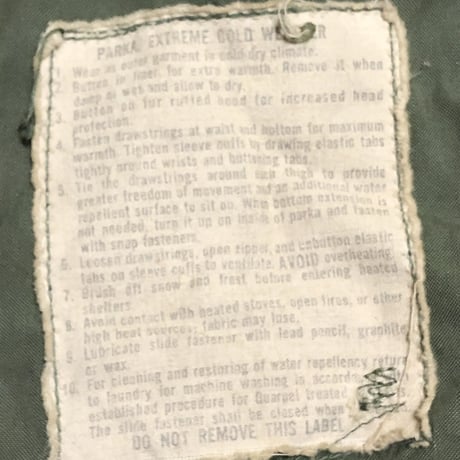 PARKA, EXTREME COLD WEATHER
1. Wear as outer garment in cold dry climate.
2. Button in liner for extra warmth. Remove it when
damp or wet and allow to dry.
3. Button on fur ruffed hood for increased head
protection.
4. Fasten drawstrings at waist and bottom for maximum
warmth. Tighten sleeve cuffs by drawing elastic tabs
tightly around wrists and buttoning tabs.
5. Tie the drawstrings around each thigh to provide
greater freedom of movement and an additional water
repellent surface to sit on. When bottom extension is
not needed, turn it up on inside of parka and fasten
with snap fasteners.
6. Loosen drawstrings, open zipper, and unbutton elastic
tabs on sleeve cuffs to ventilate. AVOID overheating.
7. Brush off snow and frost before entering heated
shelters.
8. Avoid contact with heated stoves, open fires, or other
high heat sources; fabric may fuse.
9. Lubricate slide fastener with lead pencil, graphite
or wax.
10. For cleaning and restoring of water repellency return
to laundry for machine washing in
established procedure for Quarpel treated
The slide fastener shall be closed when
DO NOT REMOVE THIS LABEL